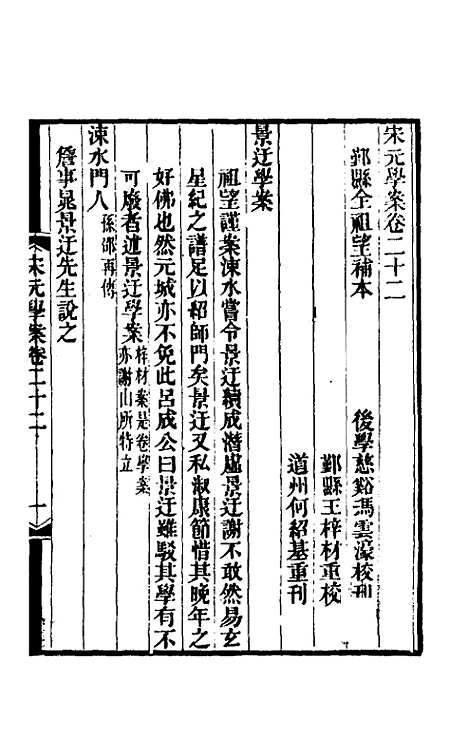 宋元學案卷二十二
鄞縣全祖望補本
後學慈谿馮雲濠校刊
鄞縣王梓材重校
道州何紹基重刊
景迂學案
祖望謹案涑水嘗令景迂續成潛虛景迂謝不敢然易玄
星紀之譜足以紹師門矣景迂又私淑康節惜其晚年之
好佛也然元城亦不免此呂成公曰景迂雖駁其學有不
可廢者述景迂學案梓材案是卷學案亦謝山所特立
涑水門人孫邵再傳
詹事晁景迂先生說之
宋元學案卷二十二
一